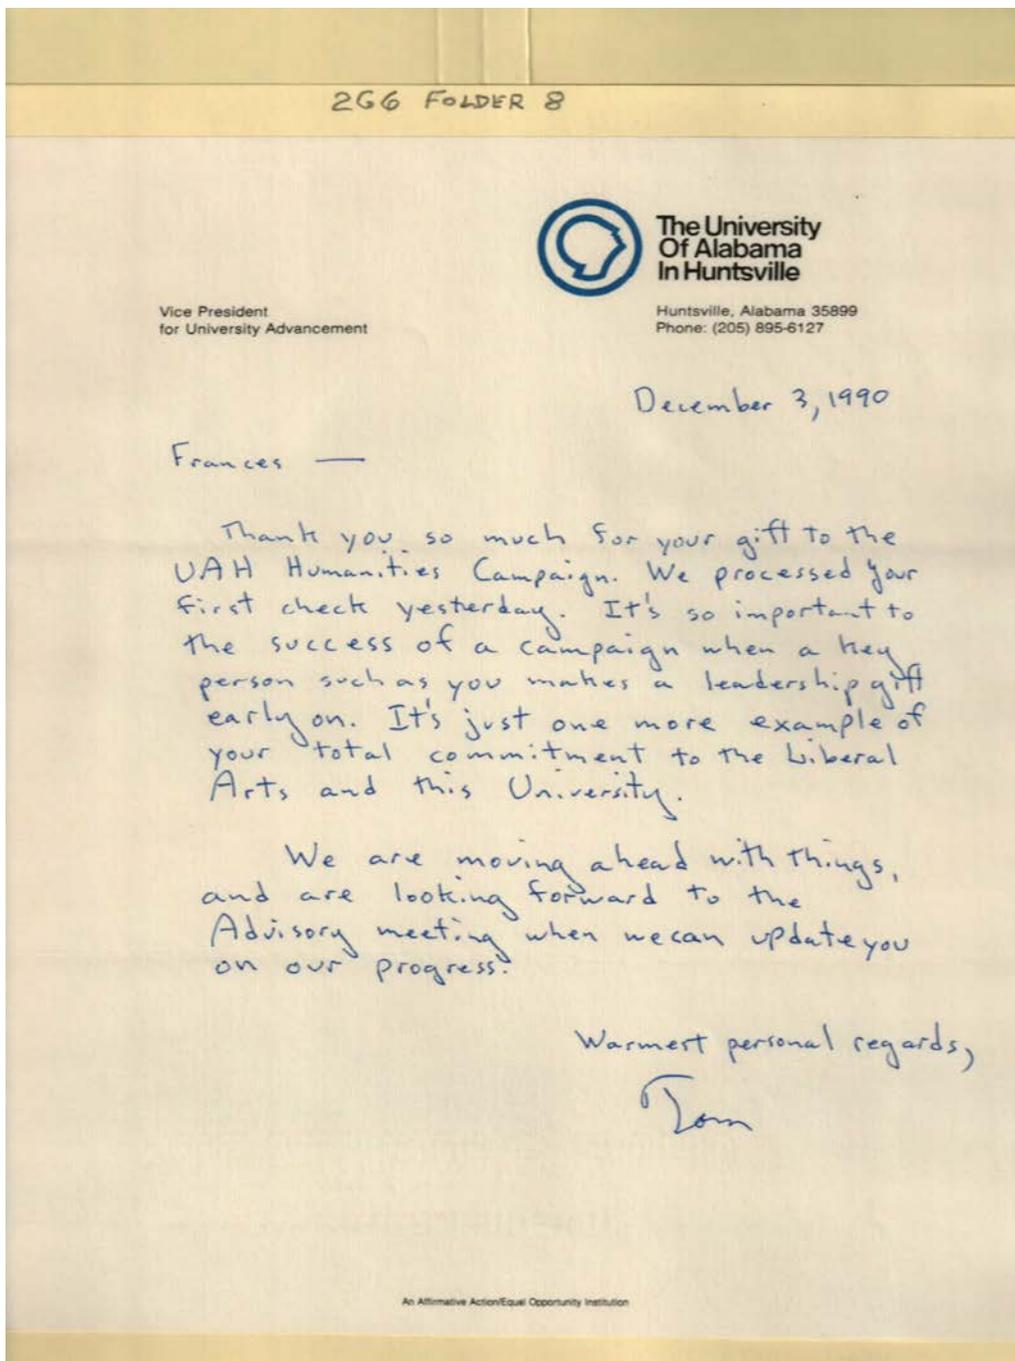 2G6 FOLDER 8
The University
Of Alabama
In Huntsville
Vice President
for University Advancement
Huntsville, Alabama 35899
Phone: (205) 895-6127
December 3, 1990
Frances —
Thank you so much for your gift to the
UAH Humanities Campaign. We processed your
first check yesterday. It's so important to
the success of a campaign when a key
person such as you makes a leadership gift
early on. It's just one more example of
your total commitment to the Liberal
Arts and this University.
We are moving ahead with things,
and are looking forward to the
Advisory meeting when we can update you
on our progress.
Warmest personal regards,
Tom
An Affirmative Action/Equal Opportunity Institution